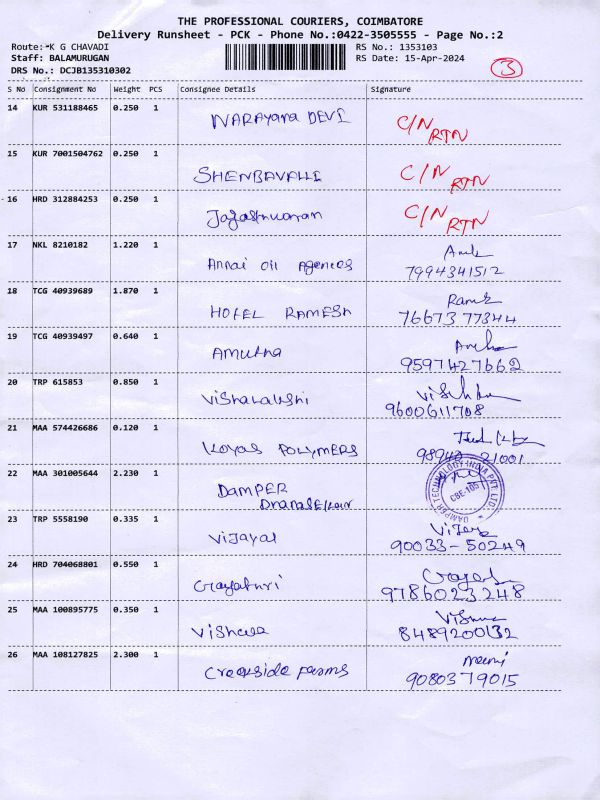 THE PROFESSIONAL COURIERS, COIMBATORE
Delivery Runsheet - PCK - Phone No.:0422-3505555 - Page No.:2
Route:*K G CHAVADI
RS No.: 1353103
Staff: BALAMURUGAN
RS Date: 15-Apr-2024
DRS No.: DCJB135310302
3
S No Consignment No Weight PCS Consignee Details Signature
14 KUR 531188465 0.250 1 NARAYana DEVI C/N RTN
15 KUR 7001504762 0.250 1 SHENBAVALLI C/N RTN
16 HRD 312884253 0.250 1 C/N RTN
17 NKL 8210182 1.220 1 Annai Oil Agencies
7994341512
18 TCG 40939689 1.870 1 HOTEL RAMESH Ramesh
76673 77344
19 TCG 40939497 0.640 1 AMUTHA
9597427662
20 TRP 615853 0.850 1 Vishalakshi
9600611708
21 MAA 574426686 0.120 1 KOVAS POLYMERS
98942 21001
22 MAA 301005644 2.230 1 DAMPER
DAMPER TECHNOLOGY INDIA PVT. LTD.
CBE-105
23 TRP 5558190 0.335 1 Vijayal
90033-50249
24 HRD 704068801 0.550 1 Gayathri
9786023248
25 MAA 100895775 0.350 1
8489200132
26 MAA 108127825 2.300 1 Creekside farms
9080379015